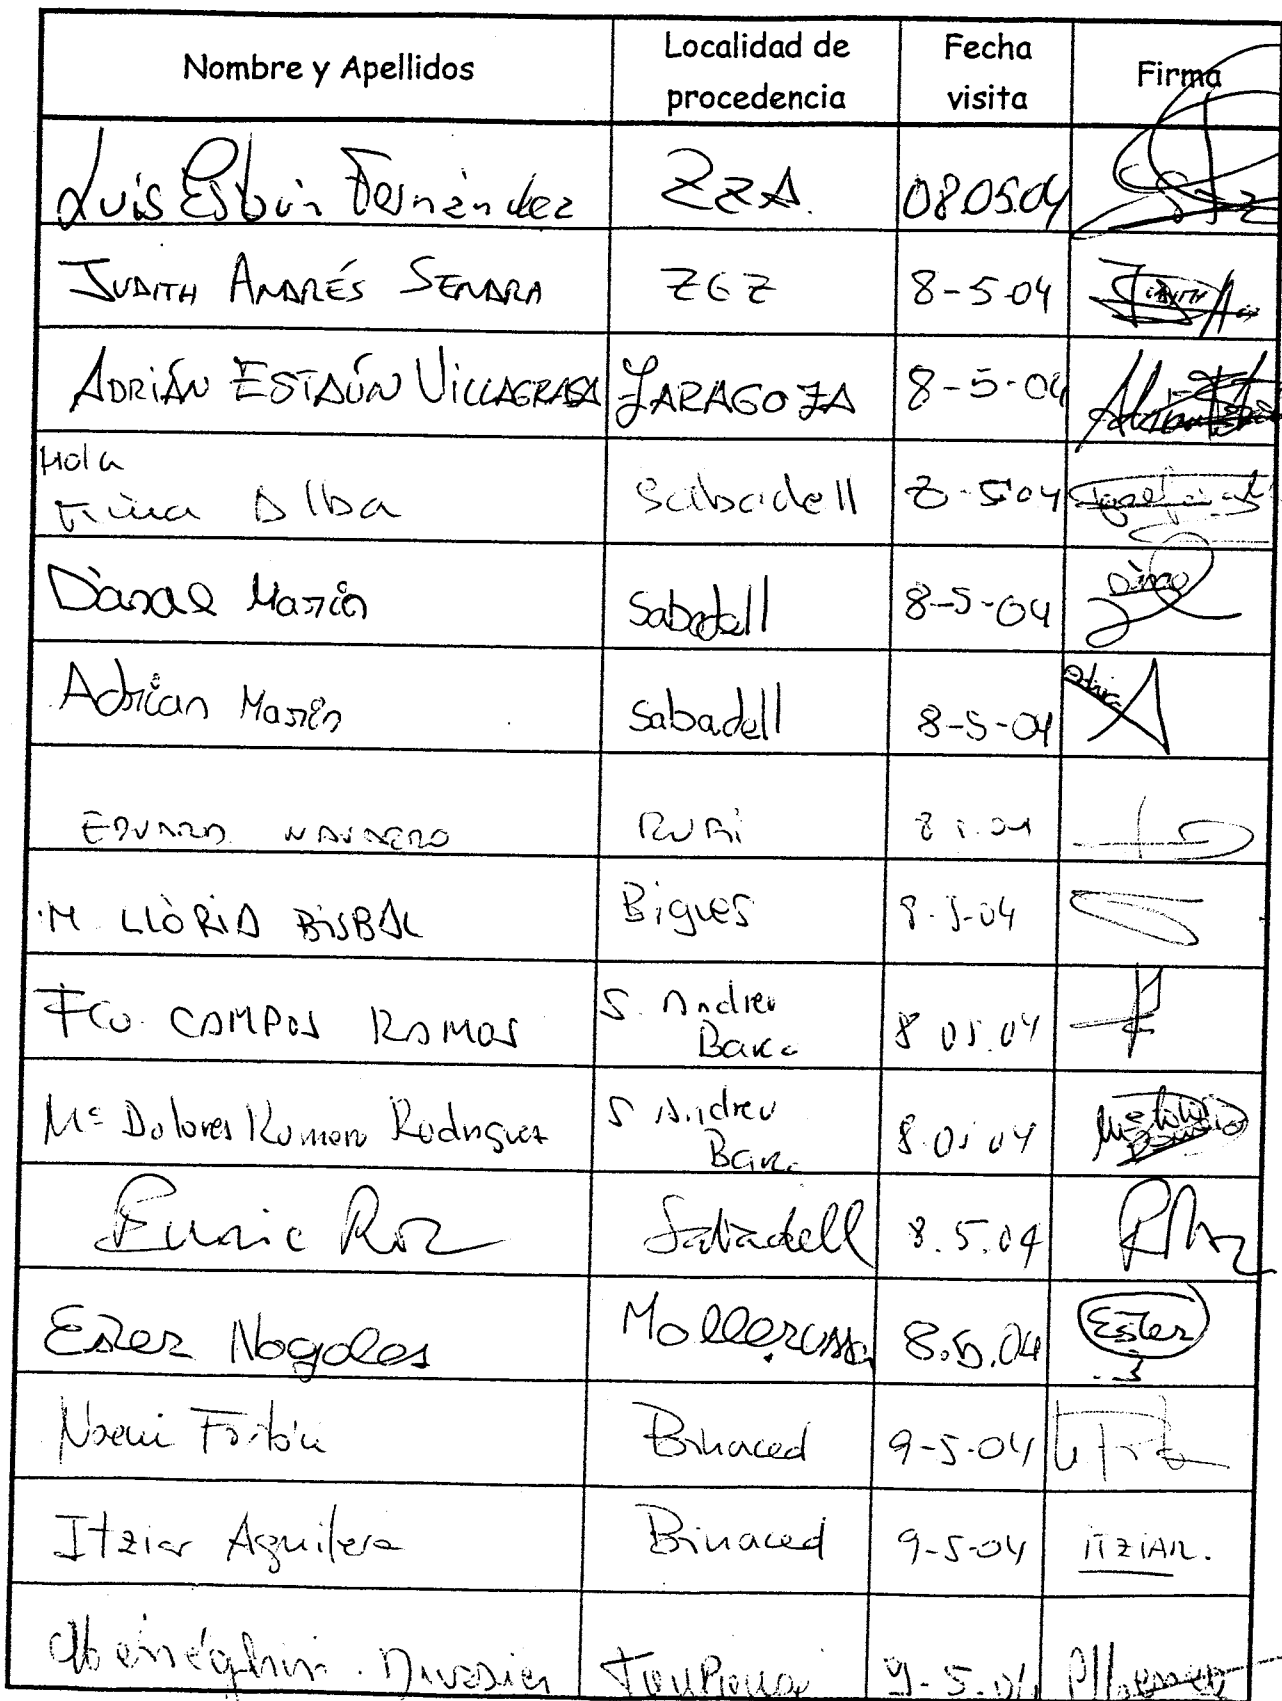 Nombre y Apellidos Localidad de procedencia Fecha visita Firma
Luis Esbrí Fernández ZZA. 08.05.04
JUDITH ANDRÉS SENDRA ZGZ 8-5-04
ADRIÁN ESTAÚN VILLAGRASA ZARAGOZA 8-5-04
Hola
Alba Sabadell 8-5-04
Marín Sabadell 8-5-04
Adrián Marín Sabadell 8-5-04 Adrian
EDUARD NAVARRO RUBí 8.5.04
M LLÒRIA BISBAL Bigues 8-5-04
FCO. CAMPOS RAMOS S. Andreu Barc. 8 05.04
Mª Dolores Romero Rodriguez S. Andreu Barc. 8.05.04
Enric Roz Sabadell 8.5.04
Ester Nogales Mollerussa 8.5.04 Ester
Noemi Fortón Binaced 9-5-04
Itziar Aguilera Binaced 9-5-04 ITZIAR.
9-5-04